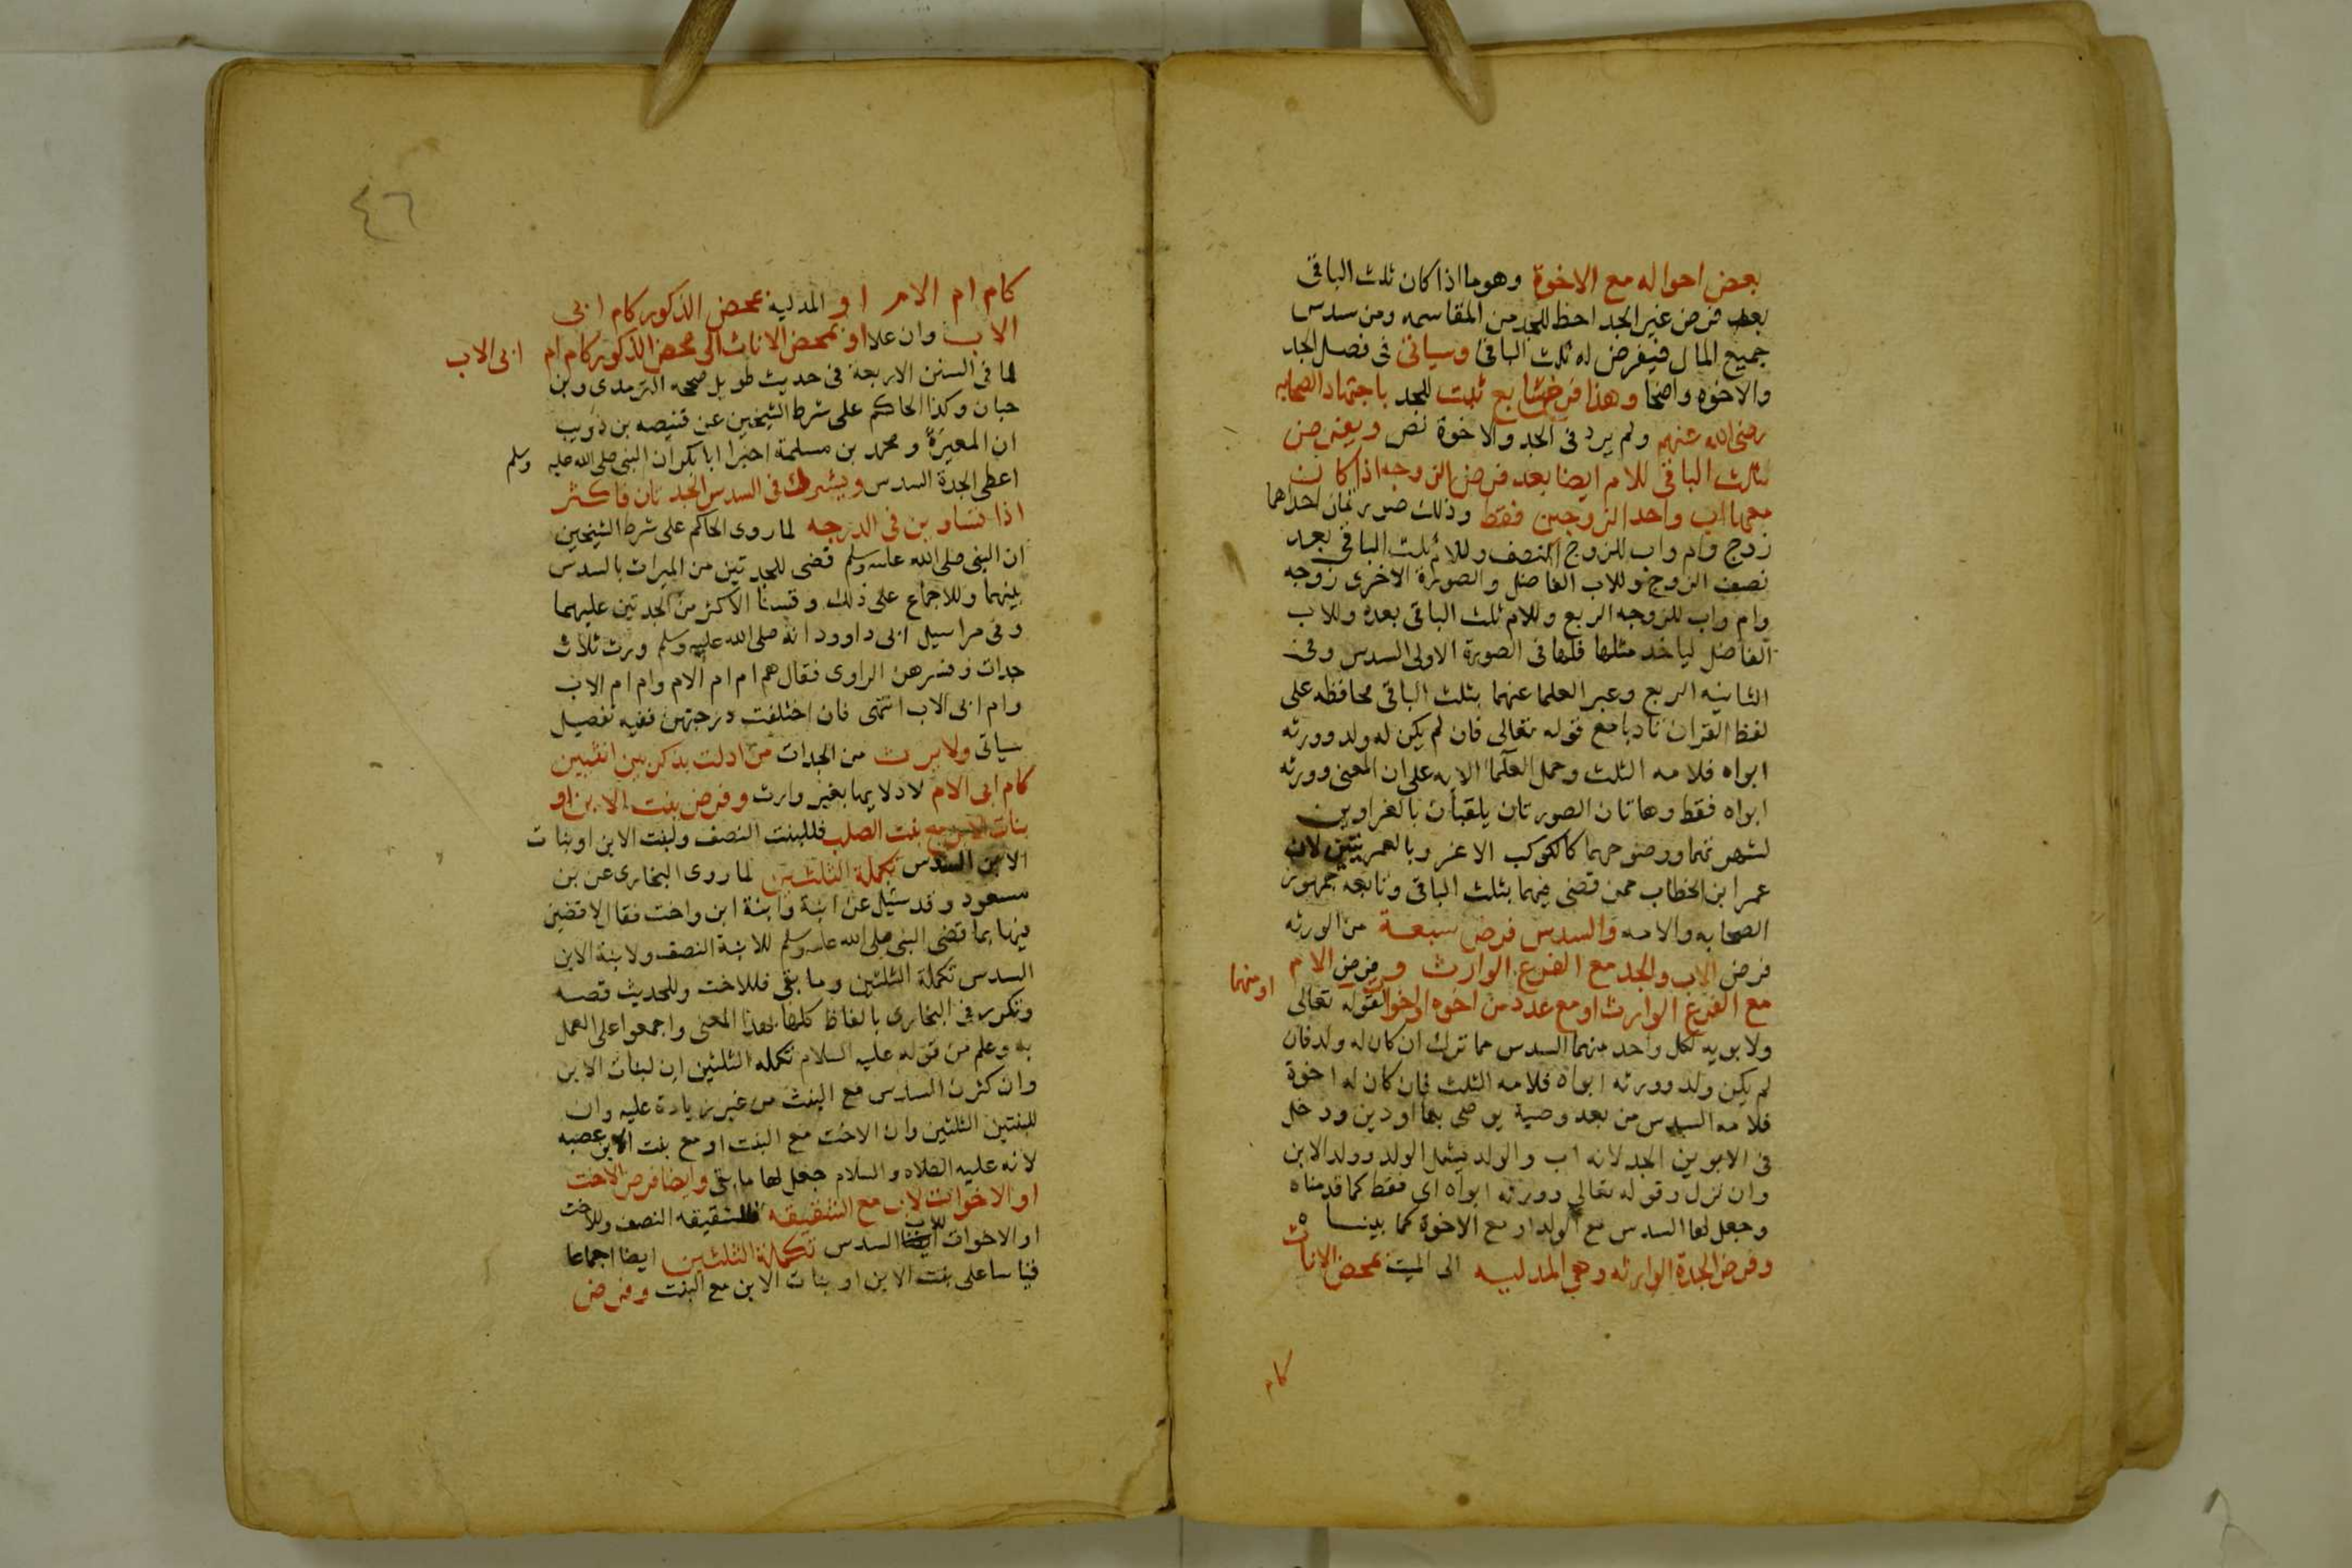 بعض احواله مع الاخوة وهوما اذا كان ثلث الباقى
بعد فرض غير الجد احظ للجد من المقاسمه ومن سدس
جميع المال فيفرض له ثلث الباقى وسياتى فى فصل الجد
والاخوه واضحا وهذا فرض سابع ثبت للجد باجتهاد الصحابه
رضى الله عنهم ولم يرد فى الجد والاخوة نص ويفرض
ثلث الباقى للام ايضا بعد فرض الزوجه اذا كان
معها اب واحد الزوجين فقط وذلك صورتان احداهما
زوج وام واب للزوج النصف وللام ثلث الباقى بعد
نصف الزوج وللاب الفاضل والصورة الاخرى زوجه
وام واب للزوجه الربع وللام ثلث الباقى بعده وللاب
الفاضل لياخذ مثلها فلها فى الصورة الاولى السدس وفى
الثانيه الربع وعبر العلما عنهما بثلث الباقى محافظه على
لفظ القران تادبا مع قوله تعالى فان لم يكن له ولد وورثه
ابواه فلامه الثلث وحمل العلما الايه على ان المعنى وورثه
ابواه فقط وهاتان الصورتان يلقبان بالغراوين
لشهرتهما ووضوحهما كالكوكب الاغر وبالعمريتين لان
عمر ابن الخطاب ممن قضى فيهما بثلث الباقى وتابعه جمهور
الصحابه والامه والسدس فرض سبعة من الورثه
فرض الاب والجد مع الفرع الوارث وفرض الام
مع الفرع الوارث او مع عدد من اخوه او اخوا لقوله تعالى
او منهما
ولابويه لكل واحد منهما السدس مما ترك ان كان له ولد فان
لم يكن ولد وورثه ابواه فلامه الثلث فان كان له اخوة
فلامه السدس من بعد وصية يوصى بها او دين ودخل
فى الابوين الجد لانه اب والولد يشمل الولد وولد الابن
وان نزل وقوله تعالى وورثه ابواه اى فقط كما قدمناه
وجعل لها السدس مع الولد او مع الاخوة كما بيناه
وفرض الجدة الوارثه وهى المدليه الى الميت بمحض الاناث
كام
٤٦
كام ام الام او المدلية بمحض الذكور كام ابى
الاب وان علا او بمحض الاناث الى محض الذكور كام ام
ابى الاب
لما فى السنن الاربعة فى حديث طويل صححه الترمدى وبن
حبان وكذا الحاكم على شرط الشيخين عن قبيصه بن ذويب
ان المغيرة ومحمد بن مسلمة اخبرا ابا بكر ان النبى صلى الله عليه وسلم
اعطى الجدة السدس ويشترك فى السدس الجدتان فاكثر
اذا تساوين فى الدرجه لما روى الحاكم على شرط الشيخين
ان النبى صلى الله عليه وسلم قضى للجدتين من الميراث بالسدس
بينهما وللاجماع على ذلك وقسنا الاكثر من الجدتين عليهما
وفى مراسيل ابى داوود انه صلى الله عليه وسلم ورث ثلاث
جدات وفسرهن الراوى فقال هم ام ام الام وام ام الاب
وام ابى الاب انتهى فان اختلفت درجتهن ففيه تفصيل
سياتى ولا يرث من الجدات من ادلت بذكر بين انثيين
كام ابى الام لادلايها بغير وارث وفرض بنت الابن او
بنات الابن مع بنت الصلب فللبنت النصف ولبنت الابن او بنات
الابن السدس تكملة الثلثين لما روى البخارى عن بن
مسعود وقد سئيل عن ابنة وابنة ابن واخت فقال لاقضين
فيها بما قضى النبى صلى الله عليه وسلم للابنة النصف ولابنة الابن
السدس تكملة الثلثين وما بقى فللاخت وللحديث قصه
وتكرر فى البخارى بالفاظ كلها بهذا المعنى واجمعوا على العمل
به وعلم من قوله عليه السلام تكمله الثلثين ان لبنات الابن
وان كثرن السدس مع البنت من غير زيادة عليه وان
للبنتين الثلثين وان الاخت مع البنت او مع بنت الابن عصبه
لانه عليه الصلاه والسلام جعل لها ما بقى وايضا فرض الاخت
او الاخوات لاب مع الشقيقه فللشقيقه النصف وللاخت
او الاخوات للاب السدس تكملة الثلثين ايضا اجماعا
قياسا على بنت الابن او بنات الابن مع البنت وفرض